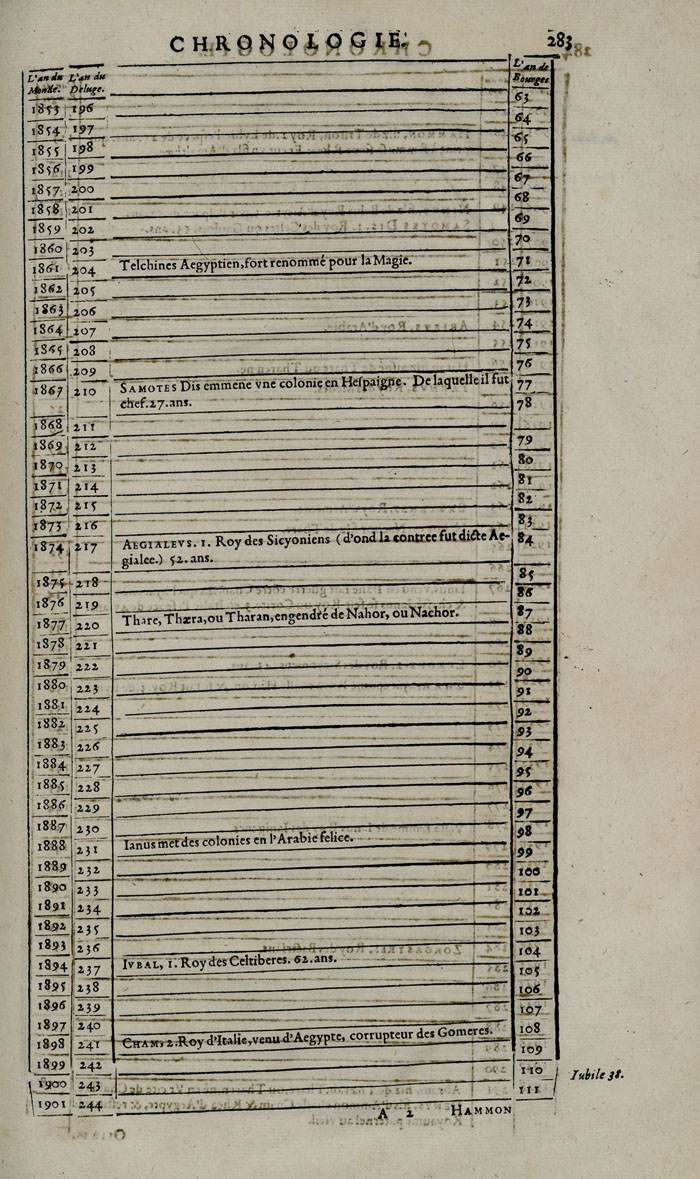 CHRONOLOGIE. 283
L'an du Monde. L'an du Deluge. L'an de Bourges.
1853 196 63
1854 197 64
1855 198 65
1856 199 66
1857 200 67
1858 201 68
1859 202 69
1860 203 70
1861 204 Telchines Aegyptien, fort renommé pour la Magie. 71
1862 205 72
1863 206 73
1864 207 74
1865 208 75
1866 209 76
1867 210 SAMOTES Dis emmene vne colonie en Hespaigne. De laquelle il fut 77
chef. 27. ans.
1868 211 78
1869 212 79
1870 213 80
1871 214 81
1872 215 82
1873 216 83
1874 217 AEGIALEVS. 1. Roy des Sicyoniens (d'ond la contree fut dicte Ae- 84
gialee.) 52. ans.
1875 218 85
1876 219 86
1877 220 Thare, Thæra, ou Tharan, engendré de Nahor, ou Nachor. 87
1878 221 88
1879 222 89
1880 223 90
1881 224 91
1882 225 92
1883 226 93
1884 227 94
1885 228 95
1886 229 96
1887 230 97
1888 231 Ianus met des colonies en l'Arabie felice. 98
1889 232 99
1890 233 100
1891 234 101
1892 235 102
1893 236 103
1894 237 IVBAL, 1. Roy des Celtiberes. 62. ans. 104
1895 238 105
1896 239 106
1897 240 107
1898 241 CHAM, 2. Roy d'Italie, venu d'Aegypte, corrupteur des Gomeres. 108
1899 242 109
1900 243 110 Iubile 38.
1901 244 111
A 2 HAMMON